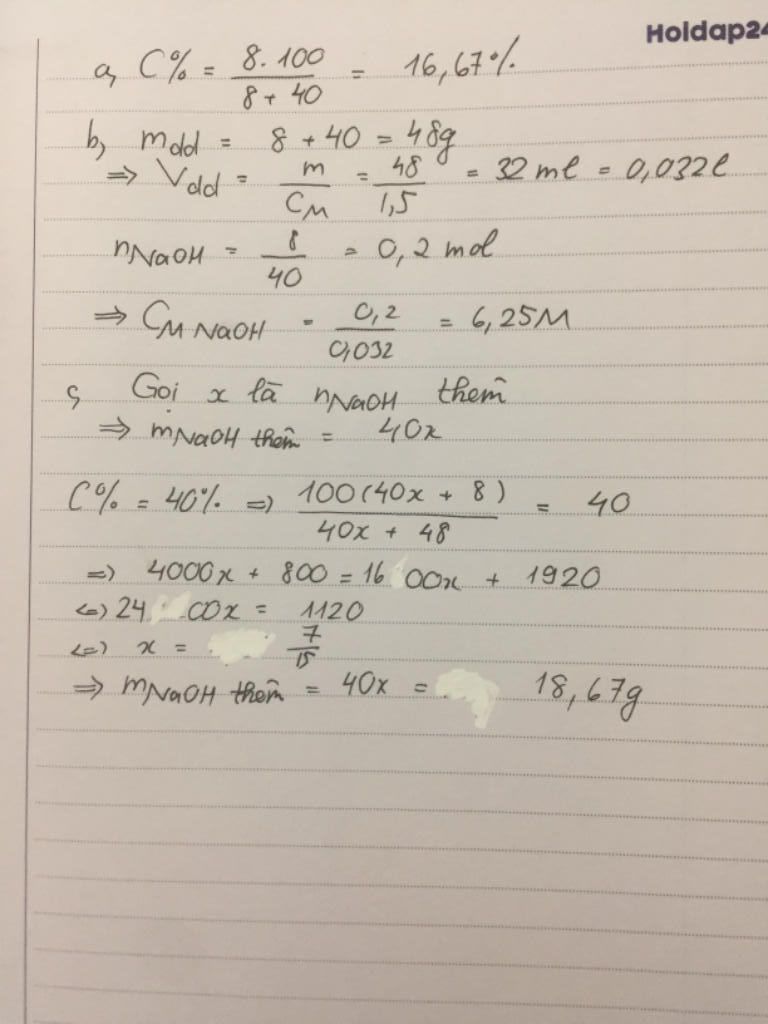 Holdap24
a, C% = 8.100 / 8 + 40 = 16,67%
b, mdd = 8 + 40 = 48g
=> Vdd = m / CM = 48 / 1,5 = 32 ml = 0,032l
nNaOH = 8 / 40 = 0,2 mol
=> CM NaOH = 0,2 / 0,032 = 6,25M
c, Gọi x là nNaOH thêm
=> mNaOH thêm = 40x
C% = 40% => 100(40x + 8) / 40x + 48 = 40
=> 4000x + 800 = 1600x + 1920
<=> 2400x = 1120
<=> x = 7 / 15
=> mNaOH thêm = 40x = 18,67g